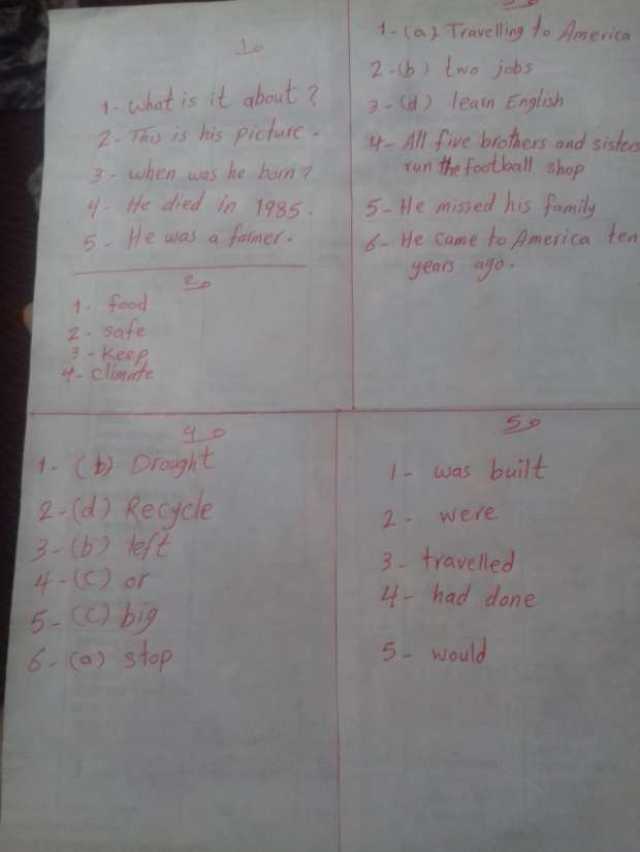 1.
1- What is it about ?
2- This is his picture.
3- when was he born ?
4- He died in 1985.
5- He was a farmer.
2.
1- food
2- safe
3- Keep
4- climate
1- (a) Travelling to America
2-(b) two jobs
3-(d) learn English
4- All five brothers and sisters
run the football shop
5- He missed his family
6- He came to America ten
years ago.
4.
1- (b) Drought
2-(d) Recycle
3-(b) left
4-(C) or
5-(C) big
6-(a) stop
5.
1- was built
2- were
3- travelled
4- had done
5- would